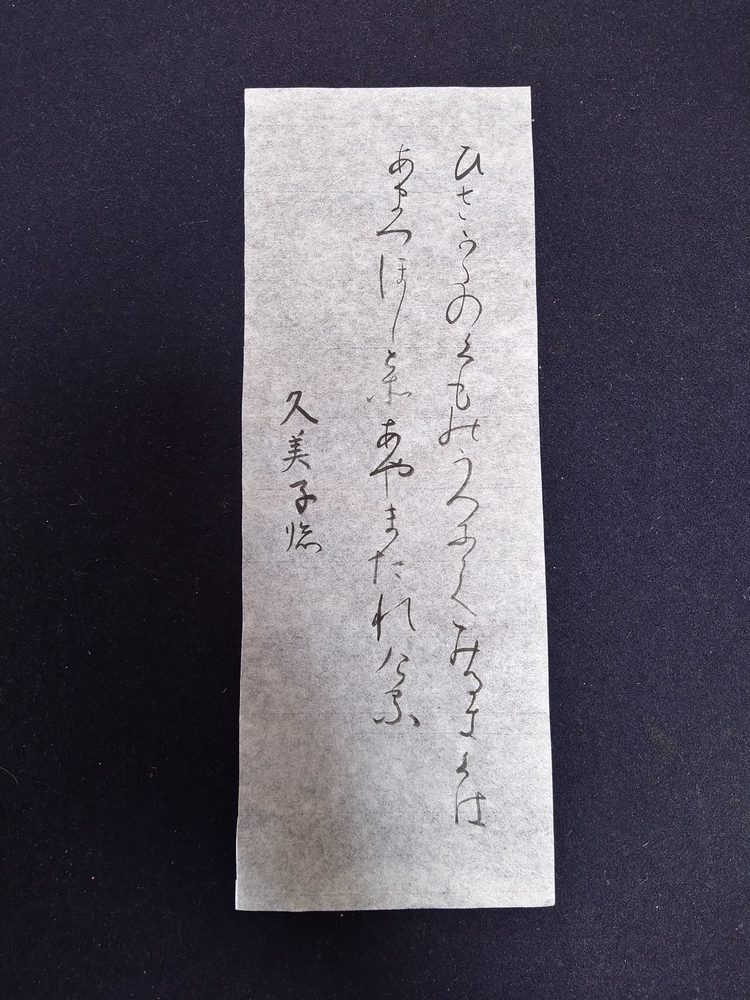 ひさかたのくものうへにてみるきくは
あまつほしとそあやまたれける
久美子臨